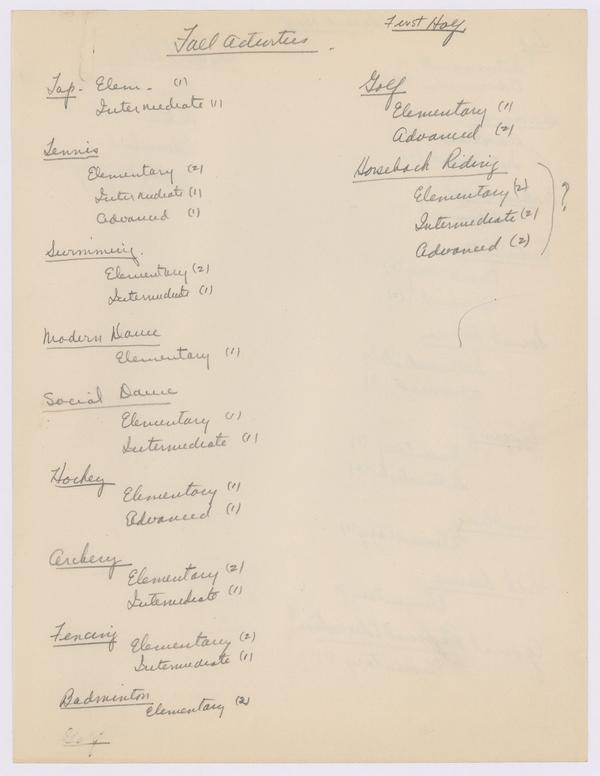 First Half
Fall Activities.
Tap. Elem. (1)
Intermediate (1)
Tennis
Elementary (2)
Intermediate (1)
Advanced (1)
Swimming.
Elementary (2)
Intermediate (1)
Modern Dance
Elementary (1)
Social Dance
Elementary (1)
Intermediate (1)
Hockey
Elementary (1)
Advanced (1)
Archery
Elementary (2)
Intermediate (1)
Fencing
Elementary (2)
Intermediate (1)
Badminton
Elementary (2)
Golf
Golf
Elementary (1)
Advanced (2)
Horseback Riding
Elementary (2)
Intermediate (2)
Advanced (2)
?